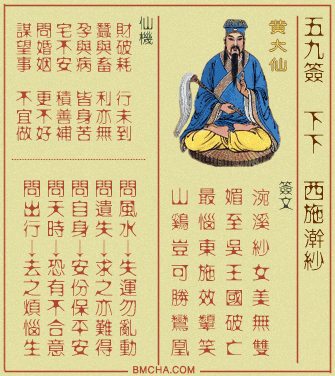 五九簽 下下 西施澣紗
黃大仙
簽文
浣溪紗女美無雙
媚至吳王國破亡
最惱東施效顰笑
山鷄豈可勝鸞鳳
仙機
財破耗 行未到
蠶與畜 利亦無
孕與病 皆身苦
宅不安 積善補
問婚姻 更不好
謀望事 不宜做
問風水→失運勿亂動
問遺失→求之亦難得
問自身→安份保平安
問天時→恐有不合意
問出行→去之煩惱生
BMCHA.COM